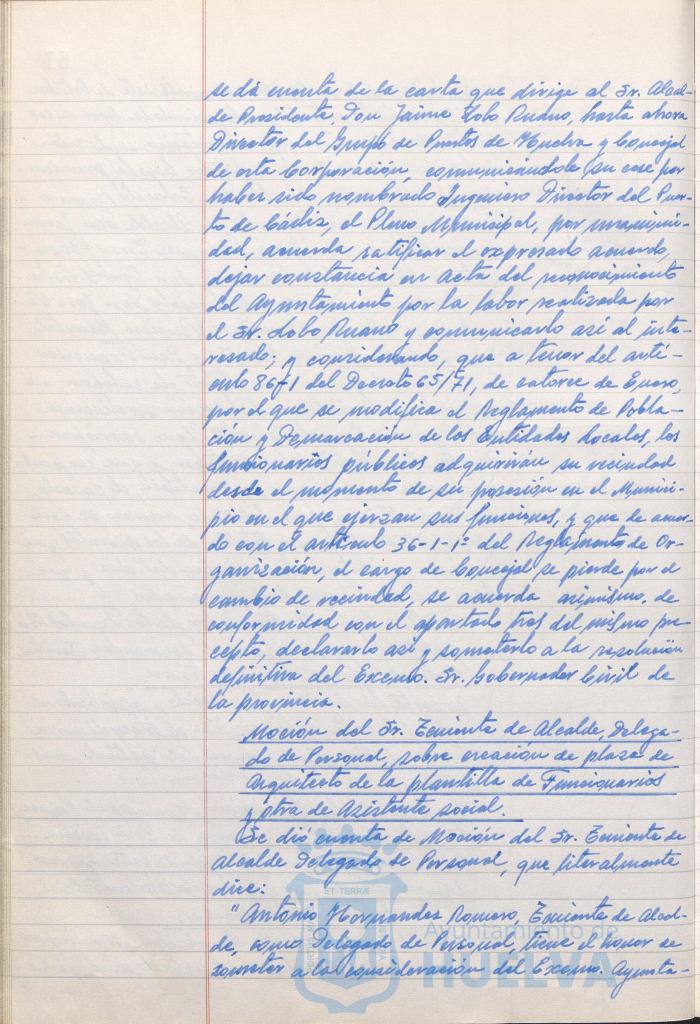 se dá cuenta de la carta que dirige al Sr. Alcal-
de Presidente, Don Jaime Lobo Ruano, hasta ahora
Director del Grupo de Puertos de Huelva y Concejal
de esta Corporación, comunicándole su cese por
haber sido nombrado Ingeniero Director del Puer-
to de Cádiz, el Pleno Municipal, por unanimi-
dad, acuerda ratificar el expresado acuerdo,
dejar constancia en acta del reconocimiento
del Ayuntamiento por la labor realizada por
el Sr. Lobo Ruano y comunicarlo así al inte-
resado; y considerando, que a tenor del artí-
culo 86-1 del Decreto 65/71, de catorce de Enero,
por el que se modifica el Reglamento de Pobla-
ción y Demarcación de las Entidades Locales, los
funcionarios públicos adquirirán su vecindad
desde el momento de su posesión en el Munici-
pio en el que ejerzan sus funciones, y que de acuer-
do con el artículo 36-1-1º del Reglamento de Or-
ganización, el cargo de Concejal se pierde por el
cambio de vecindad, se acuerda asimismo, de
conformidad con el apartado tres del mismo pre-
cepto, declararlo así y someterlo a la resolución
definitiva del Excmo. Sr. Gobernador Civil de
la provincia.
Moción del Sr. Teniente de Alcalde, Delega-
do de Personal, sobre creación de plaza de
Arquitecto de la plantilla de Funcionarios
y otra de Asistente social.
Se dió cuenta de Moción del Sr. Teniente de
Alcalde Delegado de Personal, que literalmente
dice:
"Antonio Hernandez Romero, Teniente de Alcal-
de, como Delegado de Personal, tiene el honor de
someter a la consideración del Excmo. Ayunta-
ET TERRÆ
Ayuntamiento de
HUELVA